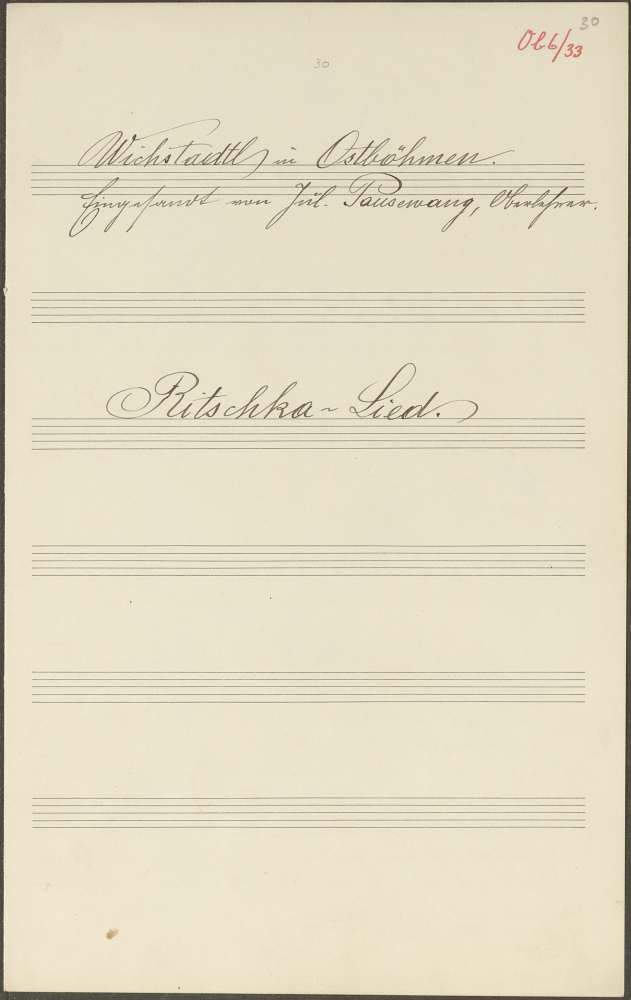 30
Ob6/33
30
Wichstadtl in Ostböhmen.
Eingesandt von Jul. Pausewang, Oberlehrer.
Ritschka-Lied.